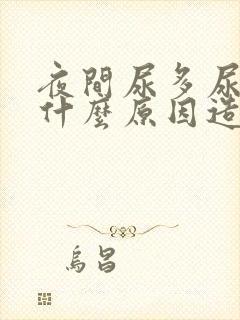 夜間尿多尿
什麼原因造
烏昌